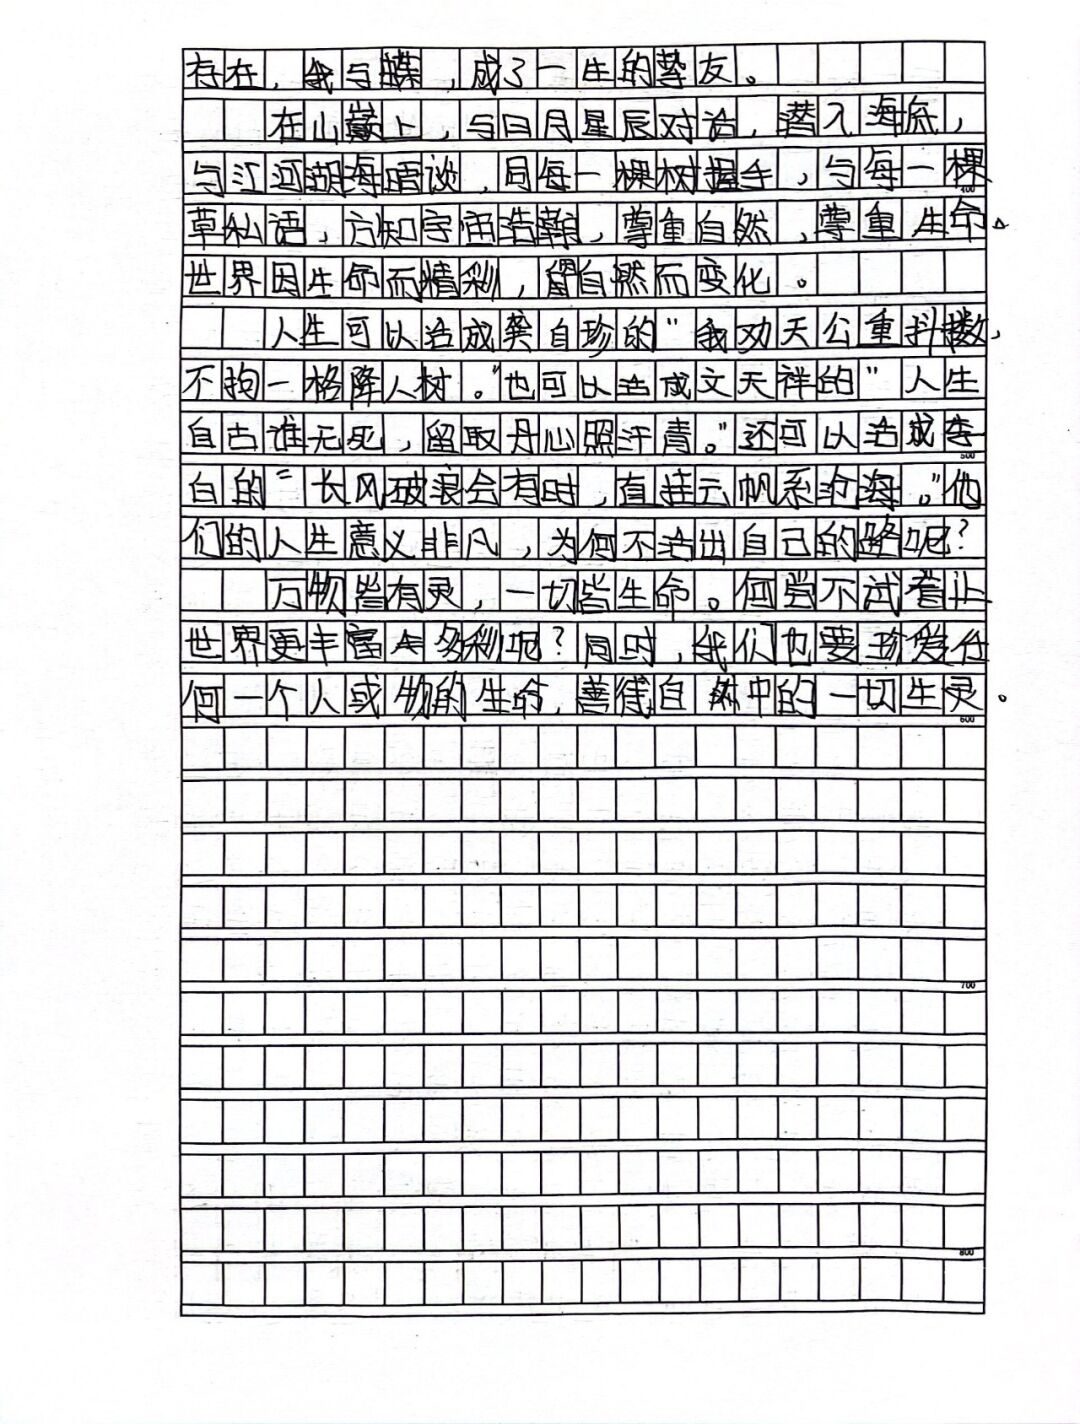 存在，我与蝶，成了一生的挚友。
在山巅上，与日月星辰对话，潜入海底，
与江河湖海晤谈，同每一棵树握手，与每一棵
400
草私语，方知宇宙浩瀚，尊重自然，尊重生命。
世界因生命而精彩，留自然而变化。
人生可以活成龚自珍的“我劝天公重抖擞，
不拘一格降人材。”也可以活成文天祥的“人生
自古谁无死，留取丹心照汗青。”还可以活成李
500
白的“长风破浪会有时，直挂云帆系沧海。”他
们的人生意义非凡，为何不活出自己的路呢？
万物皆有灵，一切皆生命。何尝不试着让
世界更丰富多彩呢？同时，我们也要珍爱任
何一个人或物的生命，善待自然中的一切生灵。
600
700
800